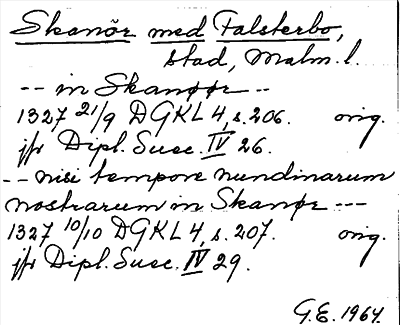 Skanör med Falsterbo,
stad, Malm. l.
-- in Skanøør --
1327 21/9 DGKL 4, s. 206. orig.
jfr Dipl. Suec. IV 26.
-- nisi tempore nundinarum
nostrarum in Skanør ---
1327 10/10 DGKL 4, s. 207. orig.
jfr Dipl. Suec. IV 29.
G.E. 1964.